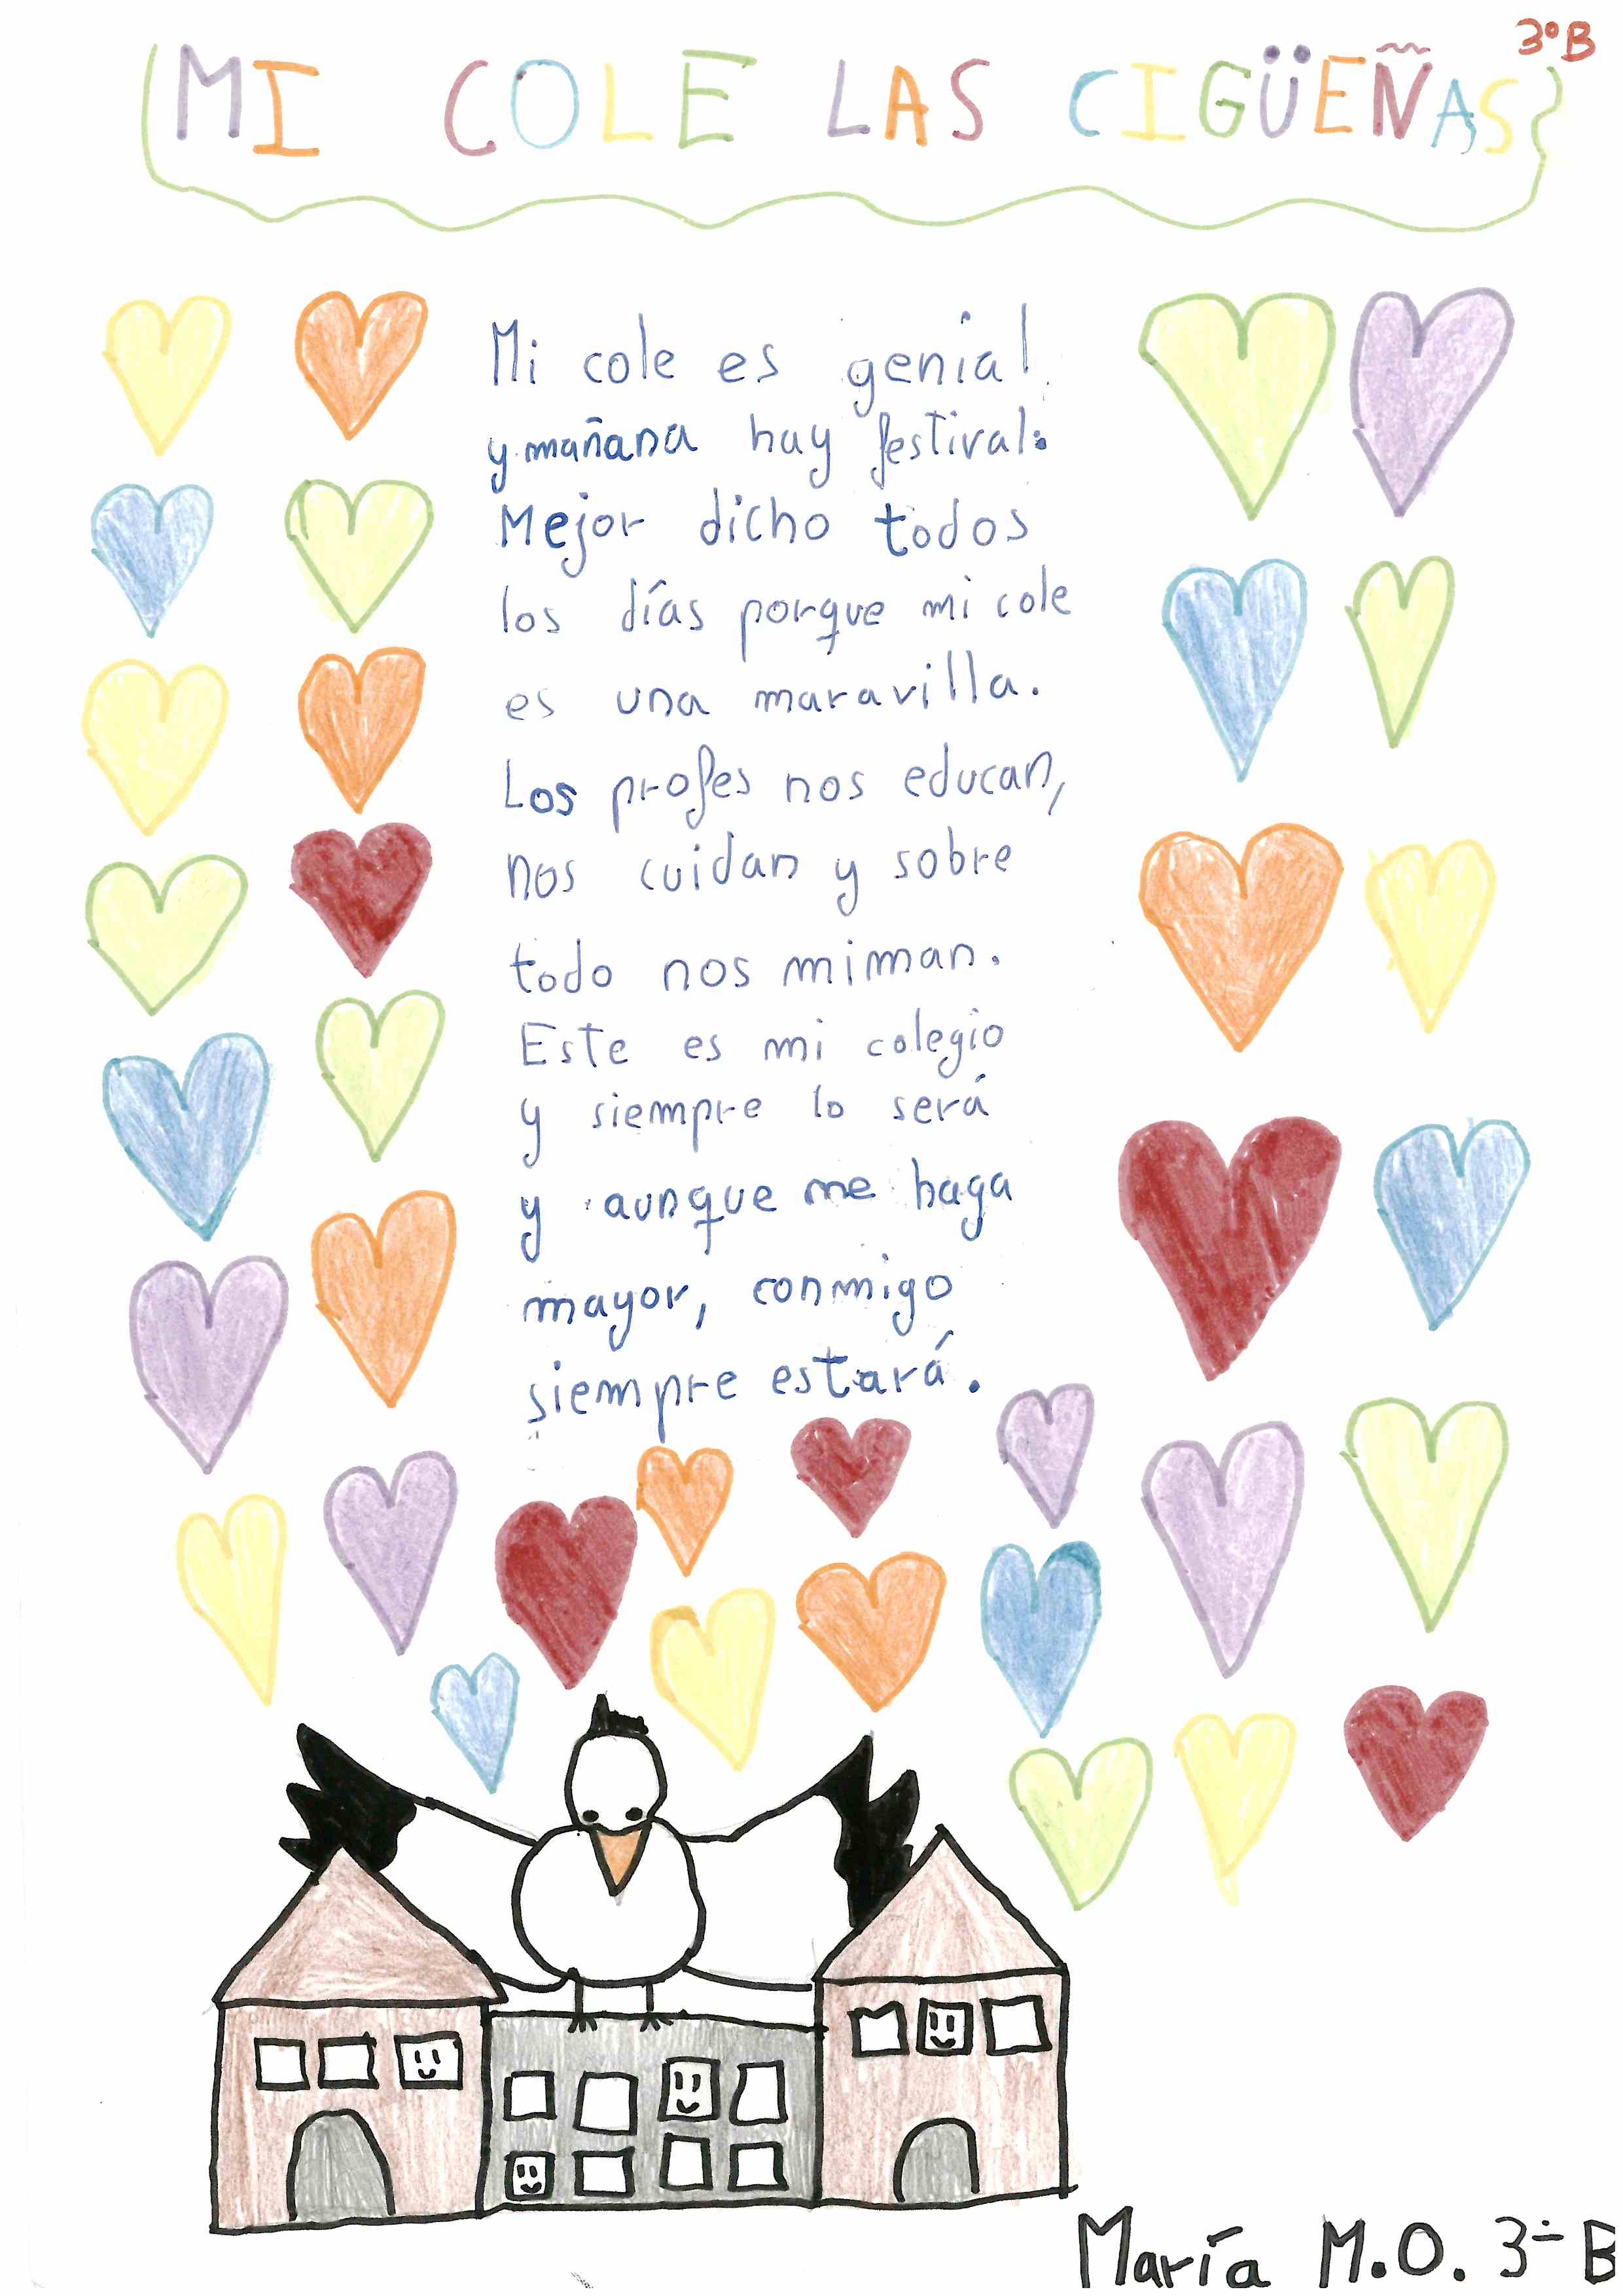 3ºB
MI COLE LAS CIGÜEÑAS
Mi cole es genial
y mañana hay festival:
Mejor dicho todos
los días porque mi cole
es una maravilla.
Los profes nos educan,
nos cuidan y sobre
todo nos miman.
Este es mi colegio
y siempre lo será
y aunque me haga
mayor, conmigo
siempre estará.
María M.O. 3º B